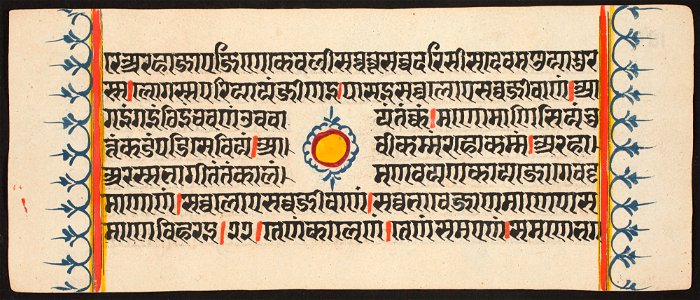 रे अरहा जाए जिणे केवली सव्वन्नू सव्वदरिसी सदेवमणुयासुर
स्स । लोगस्स परियायं जाणइ । पासइ सव्वलोए सव्वजीवाणं । आ
गइं गइं ठिइं चवणं उववा यं तक्कं । मणो माणसियं भु
त्तं कडं पडिसेवियं । आ वीकम्मं रहोकम्मं । अरहा ।
अरहस्सभागी तं तं कालं । मणवयणकायजोगे वट्ट
माणाणं । सव्वलोए सव्वजीवाणं । सव्वभावे जाणमाणे पास
माणे विहरइ । तेणं कालेणं । तेणं समएणं । समणे भ